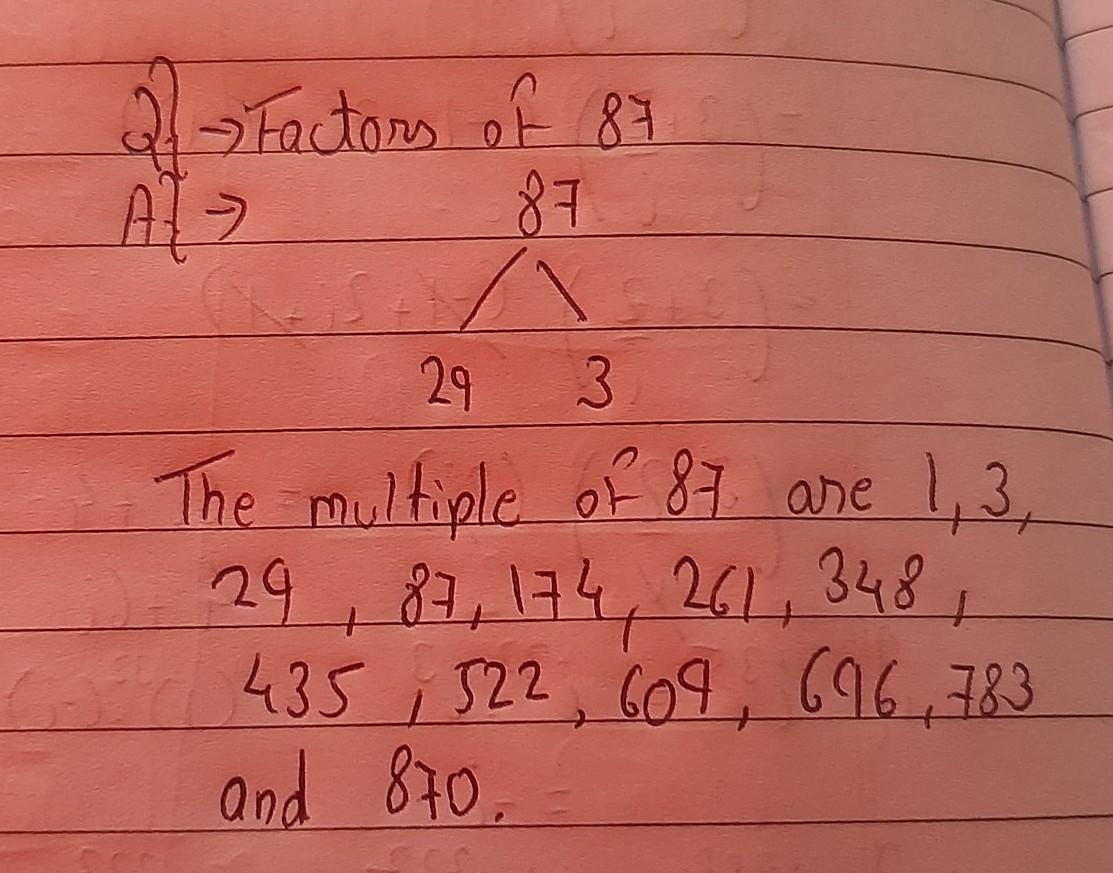 Q} → Factors of 87
A} → 87
29 3
The multiple of 87 are 1, 3,
29, 87, 174, 261, 348,
435, 522, 609, 696, 783
and 870.